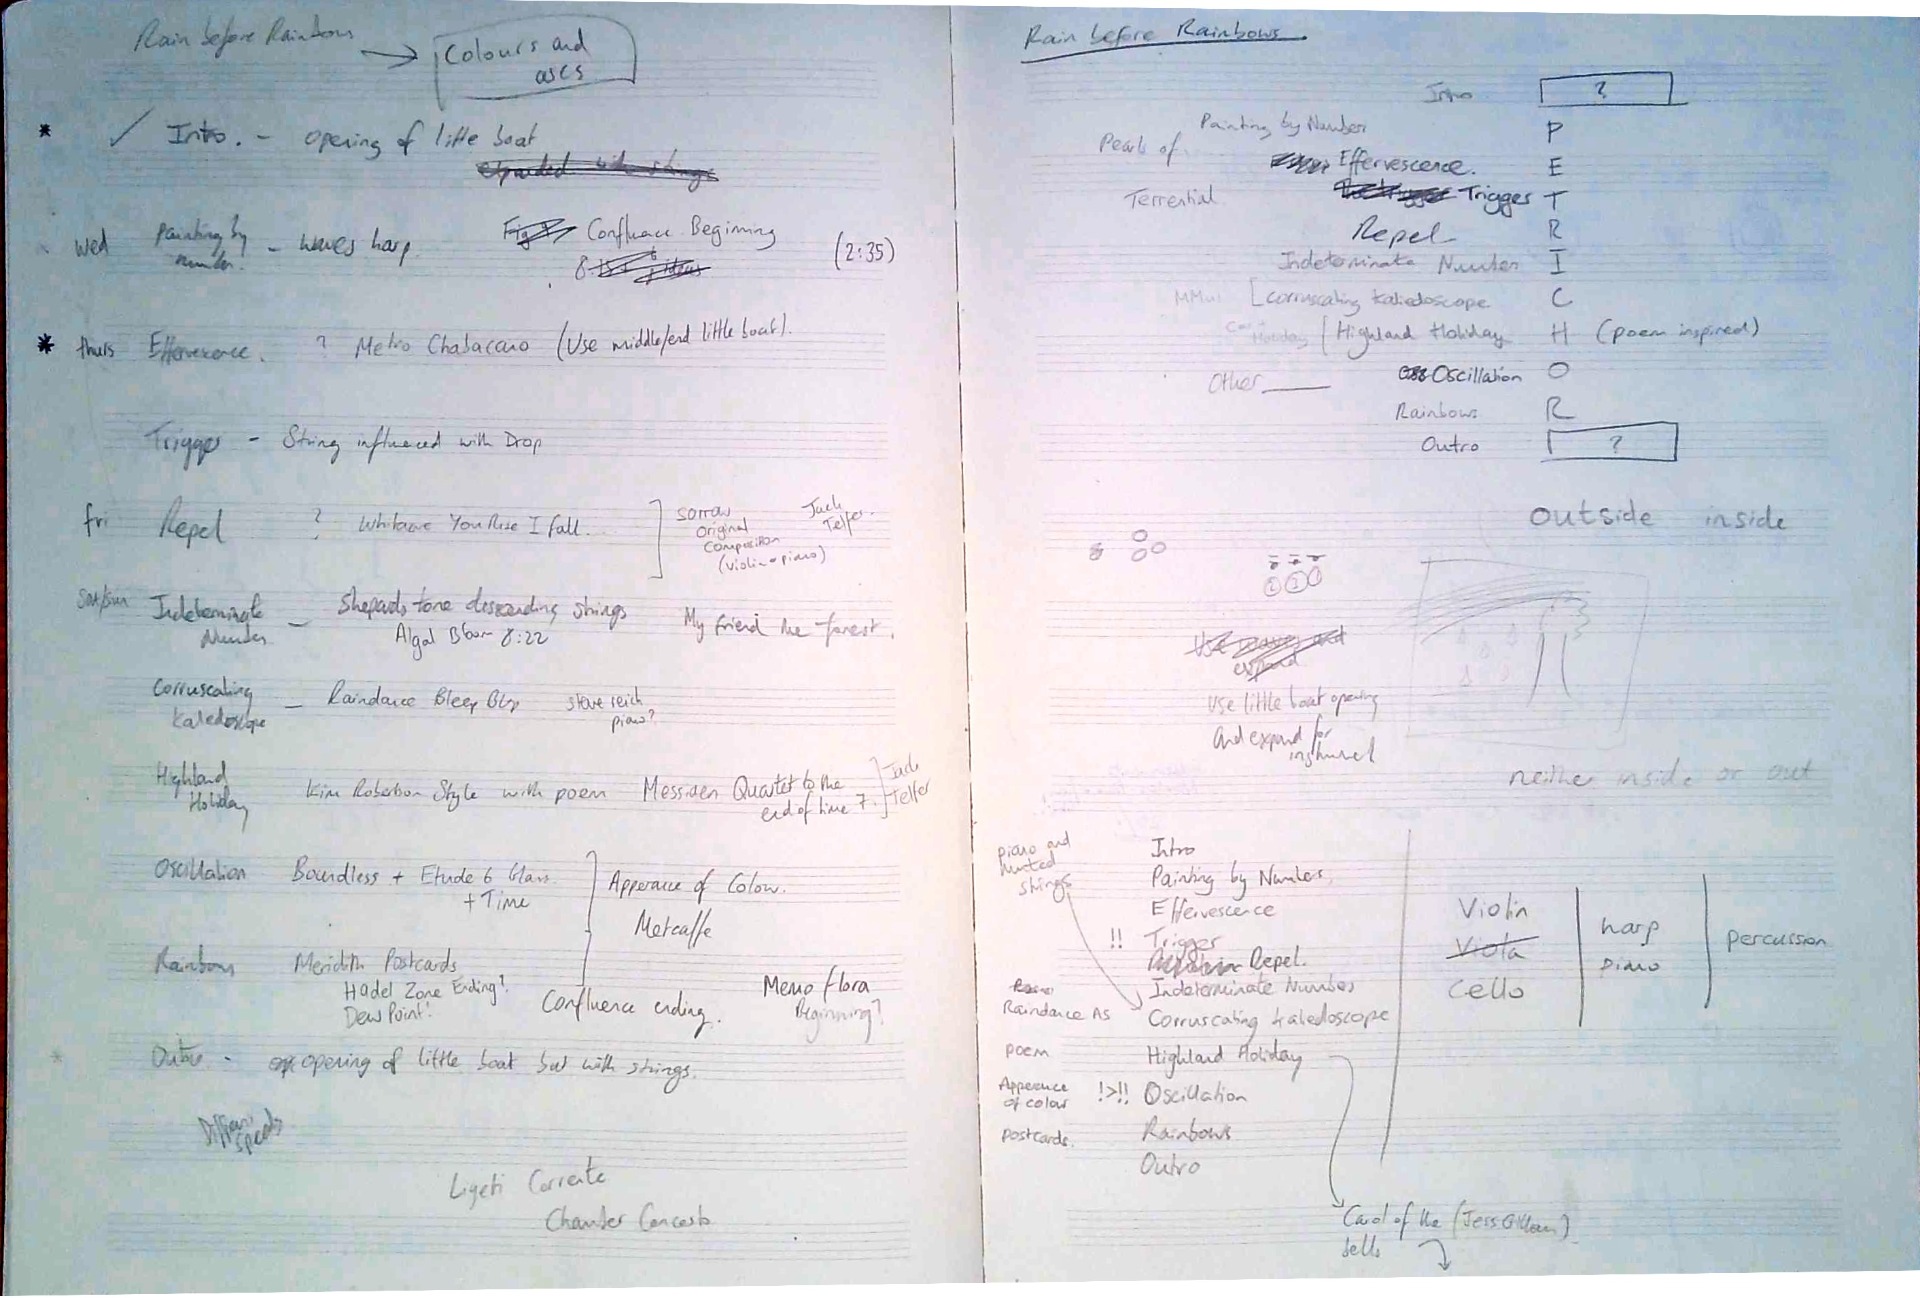 Rain before Rainbows
Colours and
axes
✓ Intro. - opening of little boat
Wed Painting by - waves harp. Confluence Beginning (2:35)
number.
thurs Effervescence. ? Metro Chabacano (Use middle/end little boat).
Trigger - String influenced with Drop
fri Repel ? Whitacre You Rise I fall.
Sorrow
original
composition
(violin + piano)
Jack
Telfer.
Sat/Sun Indeterminate - Shepards tone descending strings My friend the forest.
Number Algal Bloom 8:22
Corruscating - Raindance Bleep Blip steve reich
kaledoscope piano?
Highland Kim Robertson Style with poem Messiaen Quartet to the
Holiday end of time 7.
Jack
Telfer
Oscillation Boundless + Etude 6 Glass
+ Time
Apperance of Colour.
Metcalfe
Rainbows Meridith Postcards
Hadel Zone Ending?
Dew Point?
Confluence ending.
Memo flora
Beginning?
Outro - opening of little boat but with strings.
Ligeti Corrente
Chamber Concerto
Rain before Rainbows
Intro ?
Painting by Number P
Pearls of
Effervescence. E
Terrential
Trigger T
Repel R
Indeterminate Number I
[corruscating kaliedoscope C
[Highland Holiday H (poem inspired)
Other
Oscillation O
Rainbows R
Outro ?
outside inside
Use little boat opening
and expand for
neither inside or out
piano and
muted
strings
Intro
Painting by Number
Effervescence
!! Trigger
Repel.
Indeterminate Number
Raindance As
Corruscating kaledoscope
poem Highland Holiday
Apperance
of colour
!>!! Oscillation
postcards. Rainbows
Outro
Violin
Viola
Cello
harp
piano
percussion
Carol of the (Jess Gillam)
bells